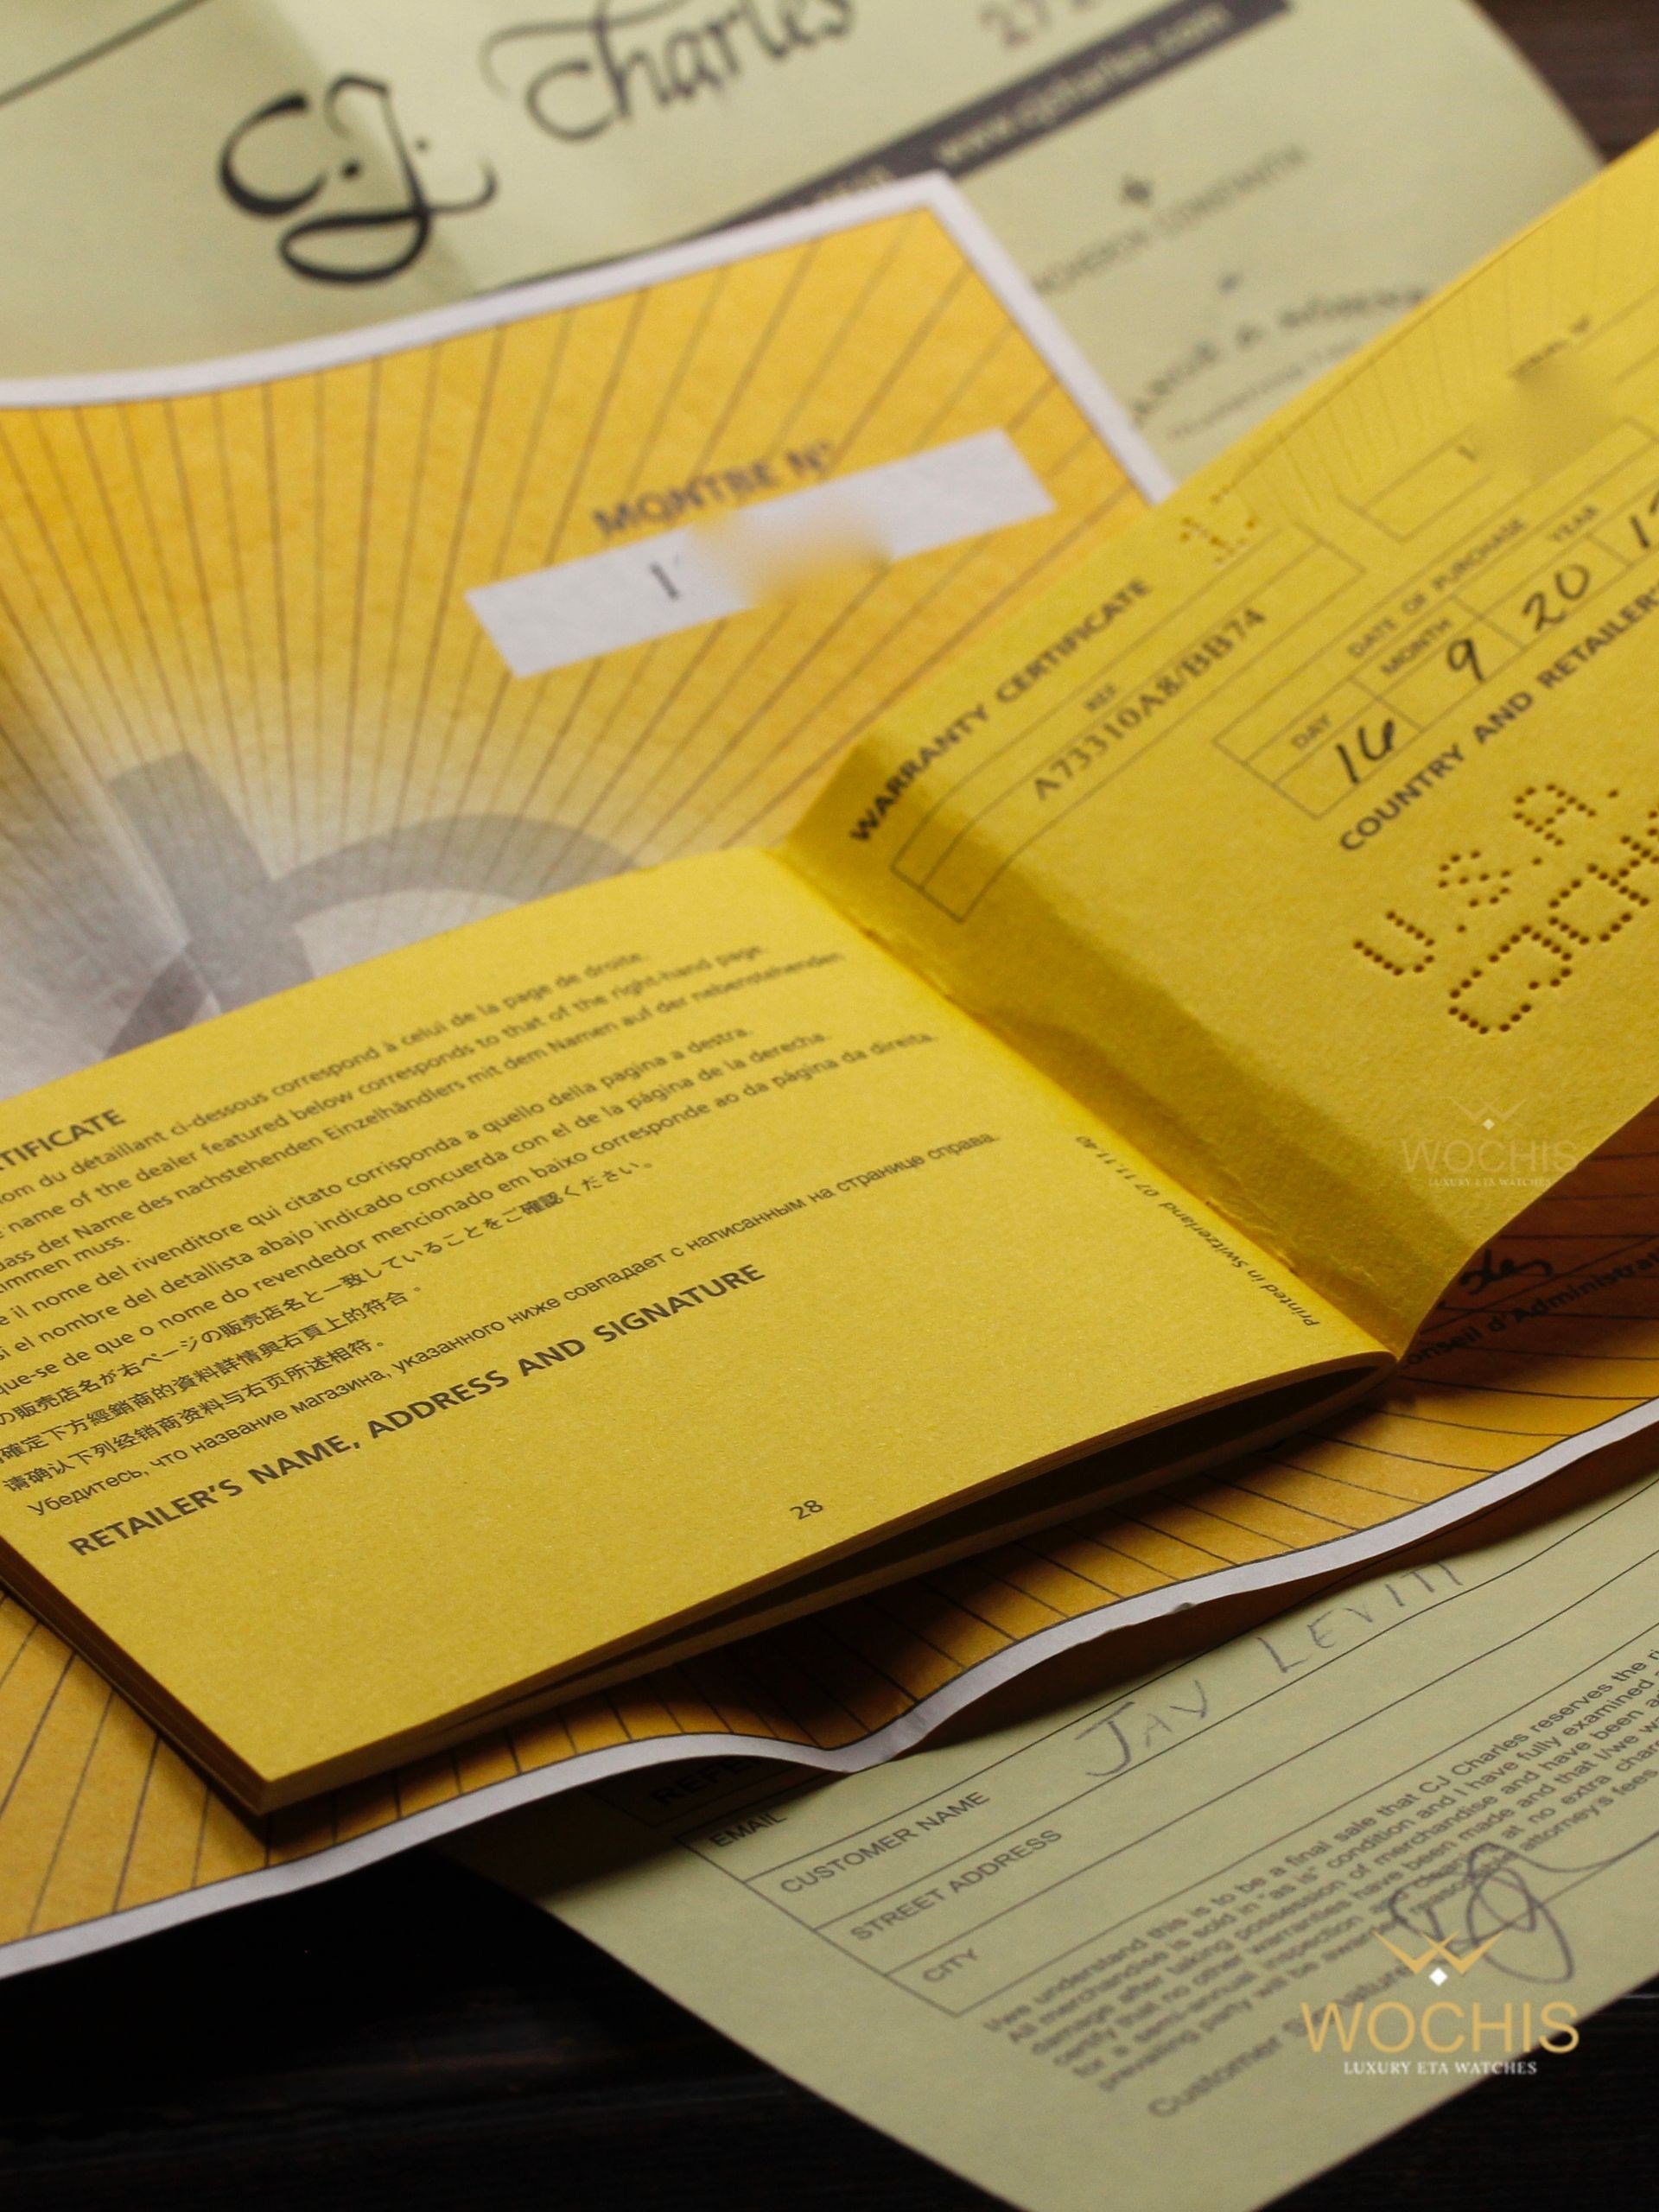 C.J. Charles
www.cjcharles.com
MONTRE N°
WARRANTY CERTIFICATE
REF.
A73310A8/BB74
DATE OF PURCHASE
DAY MONTH YEAR
16 9 20 1
COUNTRY AND RETAILER'
U.S.A.
TIFICATE
nom du détaillant ci-dessous correspond à celui de la page de droite.
name of the dealer featured below corresponds to that of the right-hand page.
dass der Name des nachstehenden Einzelhändlers mit dem Namen auf der nebenstehenden
immen muss.
e il nome del rivenditore qui citato corrisponda a quello della pagina a destra.
si el nombre del detallista abajo indicado concuerda con el de la página de la derecha.
que-se de que o nome do revendedor mencionado em baixo corresponde ao da página da direita.
の販売店名が右ページの販売店名と一致していることをご確認ください。
確定下方經銷商的資料詳情與右頁上的符合。
请确认下列经销商资料与右页所述相符。
Убедитесь, что название магазина, указанного ниже совпадает с написанным на странице справа.
RETAILER'S NAME, ADDRESS AND SIGNATURE
28
Printed in Switzerland 07.11.40
onseil d'Administrat
EMAIL
CUSTOMER NAME
JAY LEVITT
STREET ADDRESS
CITY
I/we understand this is to be a final sale that CJ Charles reserves the ri
All merchandise is sold in "as is" condition and I have fully examined
damage after taking possession of merchandise and have been ad
certify that no other warranties have been made and that I/we wa
for a semi-annual inspection and cleaning at no extra char
prevailing party will be awarded reasonable attorney's fees
Customer Signature
WOCHIS
LUXURY ETA WATCHES
WOCHIS
LUXURY ETA WATCHES